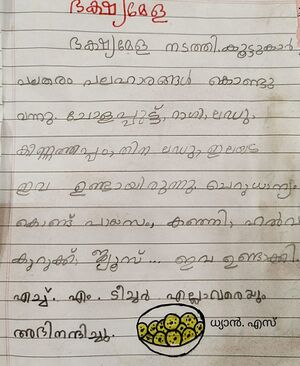 ഭക്ഷ്യമേള
ഭക്ഷ്യമേള നടത്തി. കൂട്ടുകാർ
പലതരം പലഹാരങ്ങൾ കൊണ്ടു
വന്നു. ചോളപ്പുട്ട്, റാഗി, ലഡു,
കിണ്ണത്തപ്പം, തിന ലഡു, ഇലയട
ഇവ ഉണ്ടായിരുന്നു. ചെറുധാന്യം
കൊണ്ട് പായസം, കഞ്ഞി, ഹൽവ
കുറുക്ക്, ജ്യൂസ് ... ഇവ ഉണ്ടാക്കി.
എച്ച്. എം. ടീച്ചർ എല്ലാവരെയും
അഭിനന്ദിച്ചു.
ധ്യാൻ. എസ്